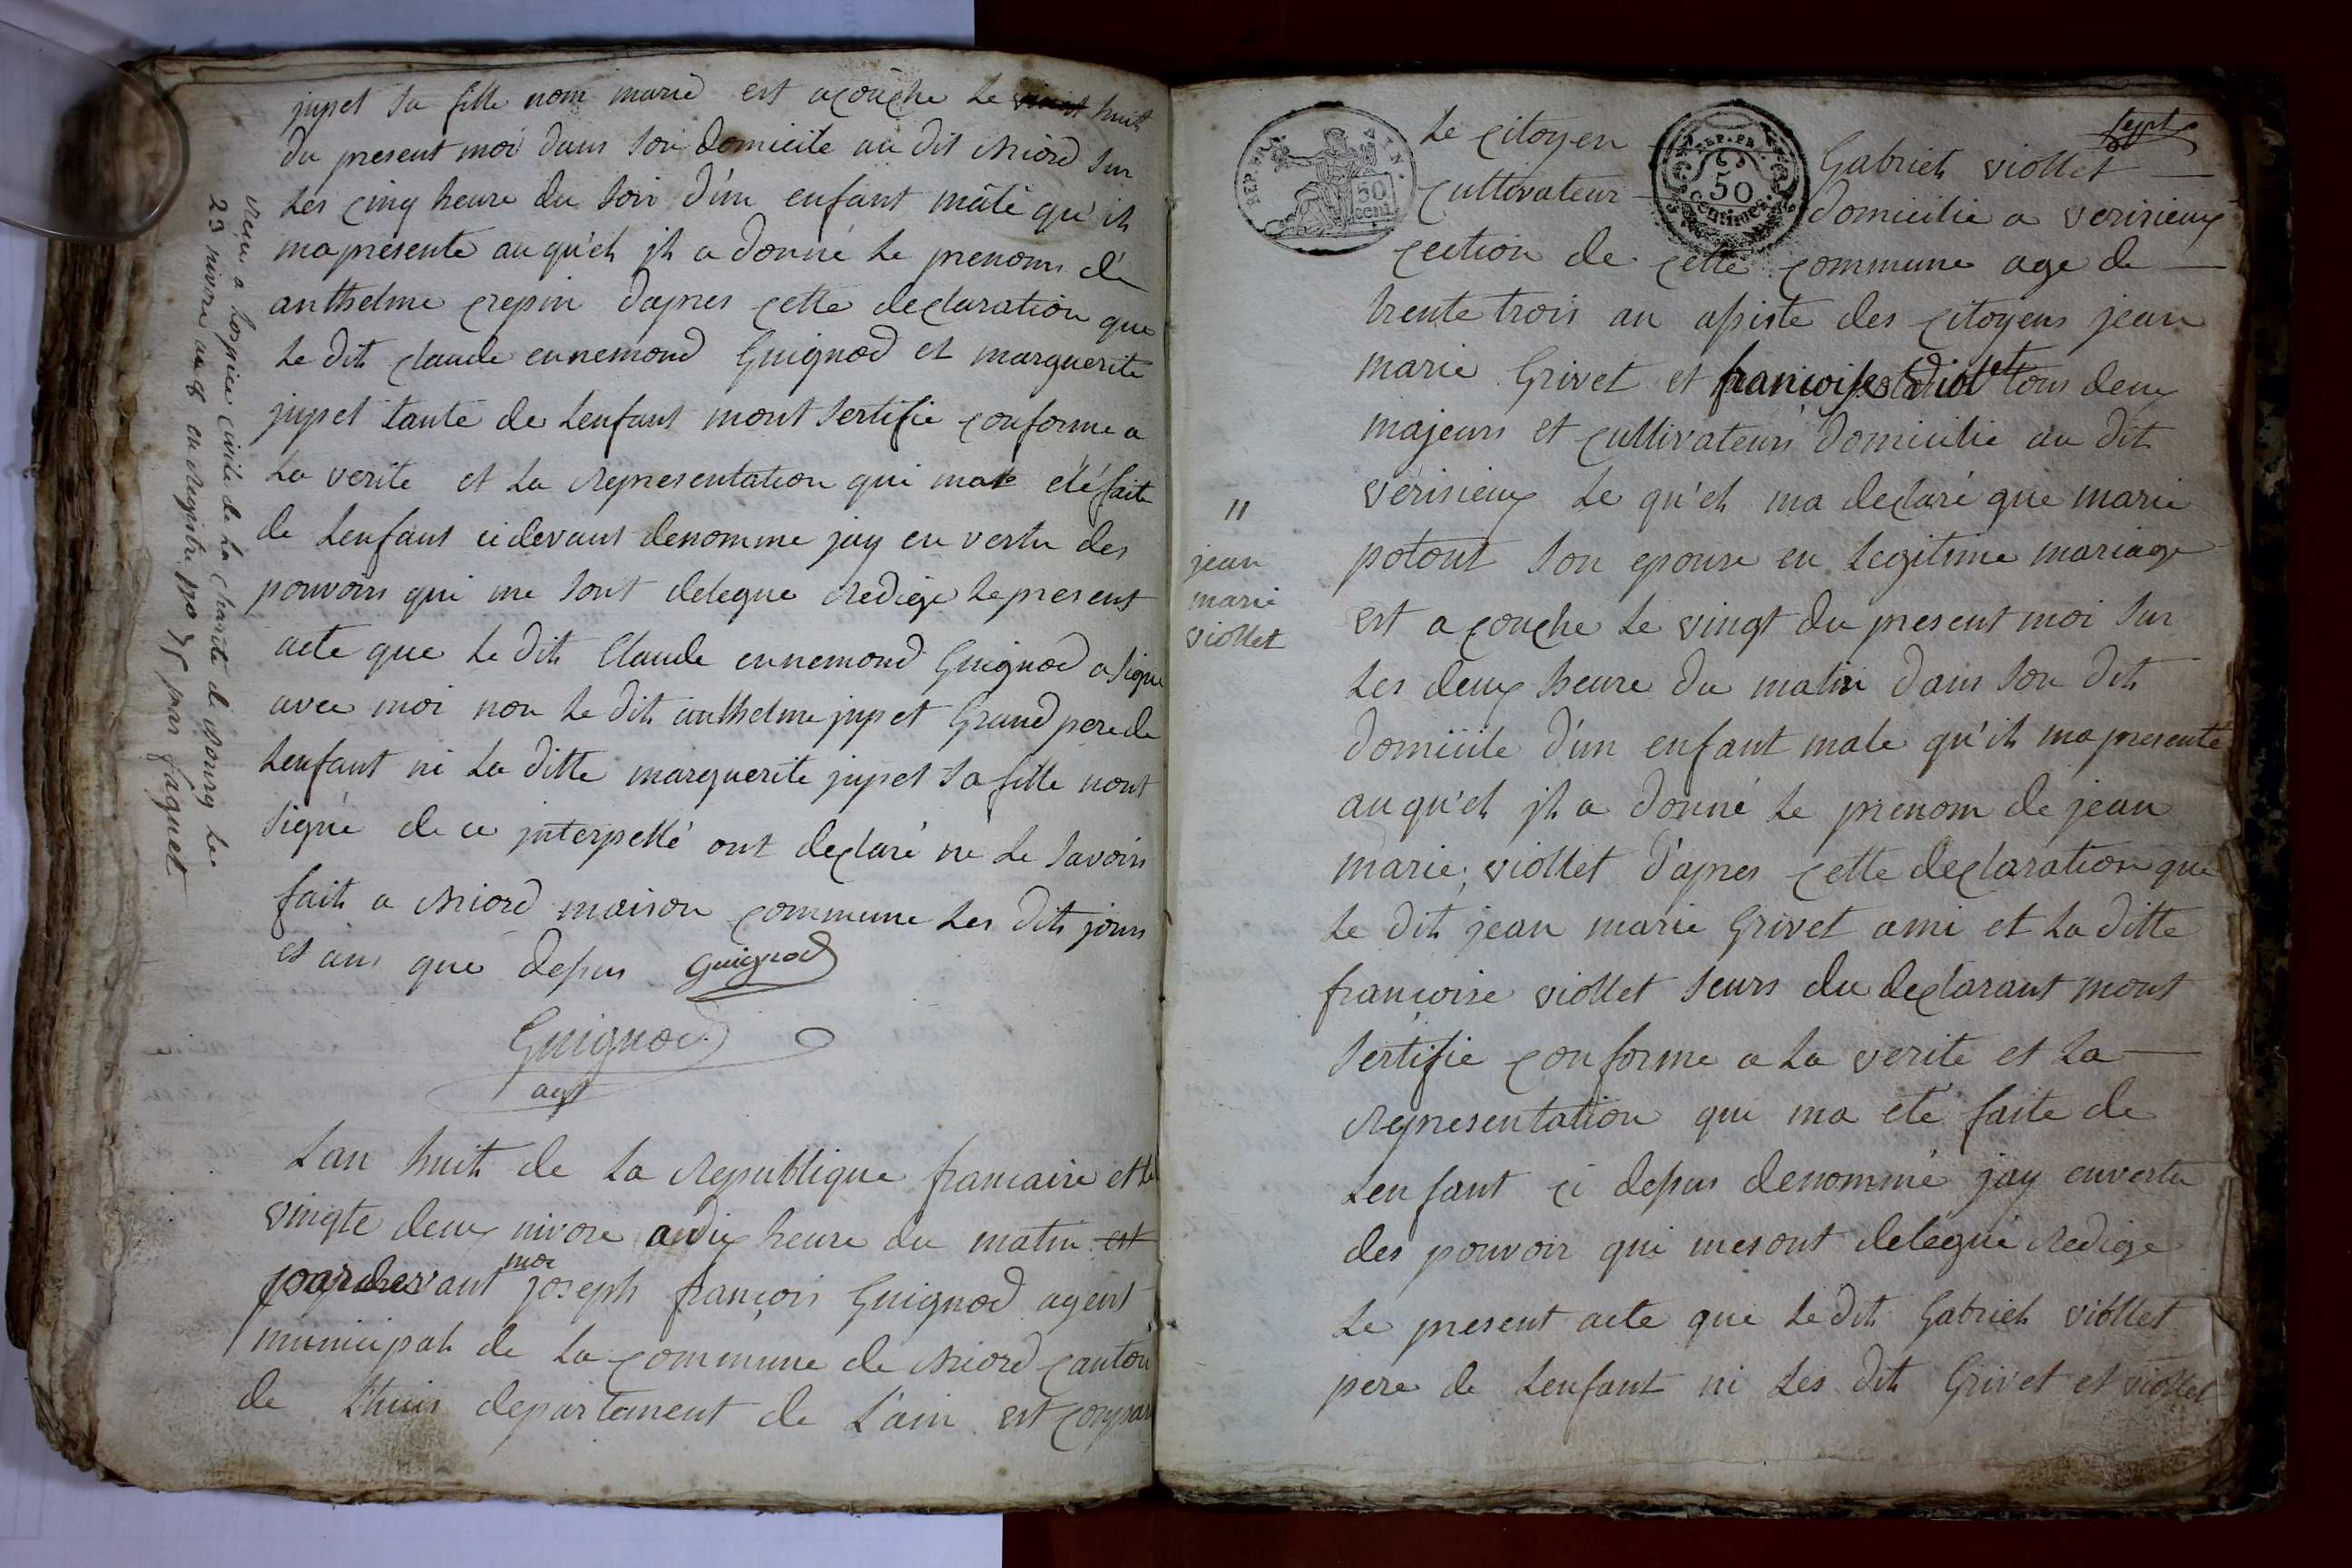 jupet sa fille nom marié est acouché le vint huit
du present moi dans son domicile au dit Niord sur
les cinq heure du soir d'un enfant mâle qu'il
ma présenté au qu'el jl a donné le prenoms de
anthelme crepin daprés cette declaration que
le dit claude ennemond Guignod et marguerite
jupet tante de lenfant mont sertifié conforme a
la verité et la representation qui ma été faite
de lenfant ci devant denommé jay en vertu des
pouvoirs qui me sont delegué redigé le present
acte que le dit Claude ennemond Guignod a signé
avec moi non le dit anthelme jupet Grand pere de
lenfant ni la ditte marguerite jupet sa fille nont
signé de ce jnterpellé ont declaré ne le savoirs
fait a Niord maison commune les dit jours
et ans que desus Guignod
Guignod
agt
reçu a hospice civile de la charité de Bourg le
23 nivose an 8 en Registre par faguet
Lan huit de la Republique francaise et le
vingte deux nivose a dix heure du matin est
pardevant moi joseph françois Guignod agent
municipal de la commune de Niord canton
de Lhuis departement de L'ain est comparu
sept
REP. FRA.
50 cent.
REP. FRA.
50 Centimes
le citoyen Gabriel viollet
cultivateur domicilié a verisieux
cection de cette commune age de
trente trois an asisté des citoyens jean
marie Grivet et françoise viollet tous deux
majeurs et cultivateurs domicilié au dit
vérisieux le qu'el ma declaré que marie
potout son epouse en legitime mariage
est acouché le vingt du present moi sur
les deux heure du matin dans son dit
domicile d'un enfant male qu'il ma presenté
au qu'el jl a donné le prenom de jean
marie viollet d'apres cette declaration que
le dit jean marie Grivet ami et la ditte
françoise viollet seurs du declarant mont
sertifié conforme a la verité et la
representation qui ma eté faite de
lenfant ci desus denommé jay en vertu
des pouvoir qui me sont delegué redigé
le present acte que le dit Gabriel viollet
pere de lenfant ni les dit Grivet et viollet
11
jean
marie
viollet